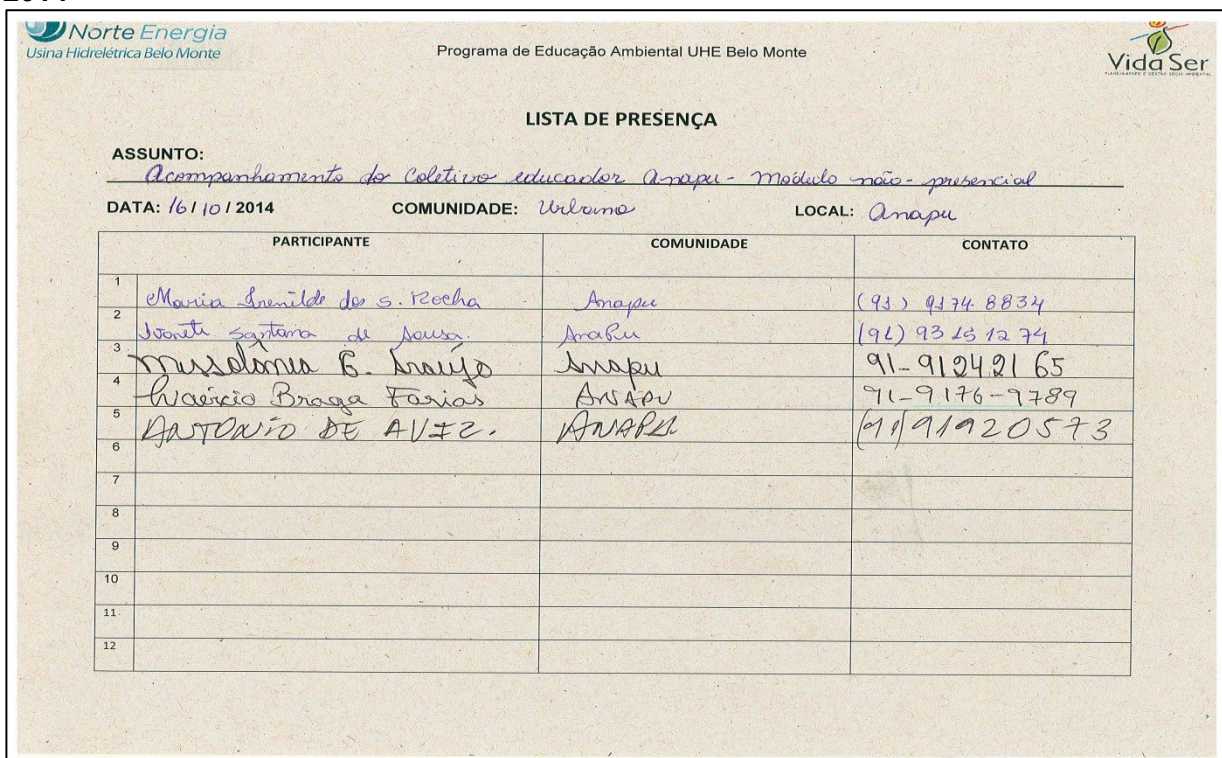 Norte Energia
Usina Hidrelétrica Belo Monte
Programa de Educação Ambiental UHE Belo Monte
Vida Ser
LISTA DE PRESENÇA
ASSUNTO:
Acompanhamento do Coletivo educador Anapu - Modulo não-presencial
DATA: 16 / 10 / 2014 COMUNIDADE: Urbano LOCAL: Anapu
PARTICIPANTE COMUNIDADE CONTATO
1 Maria Irenilde dos S. Rocha Anapu (93) 9174 8834
2 Ivonete Santana de Sousa. Anapu (91) 93 15 12 74
3 G. Araújo Anapu 91-91242165
4 Braga Farias ANAPU 91-9176-9789
5 ANTONIO DE AVIZ. ANAPU (91) 91920573
6
7
8
9
10
11
12